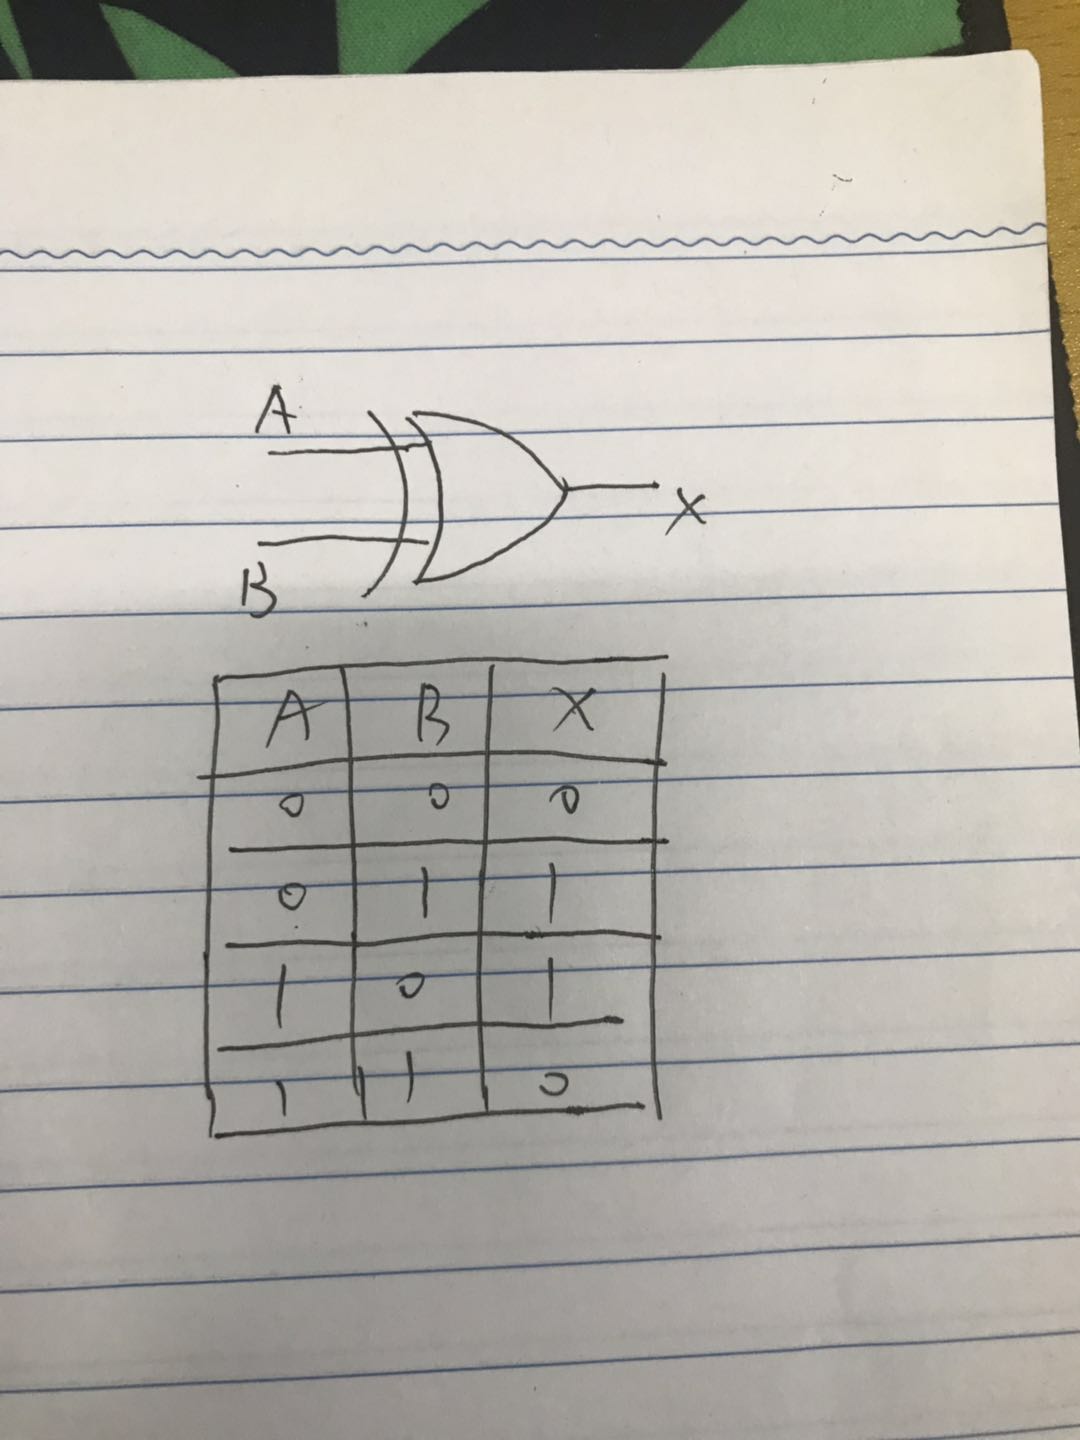 A
X
B
A B X
0 0 0
0 1 1
1 0 1
1 1 0